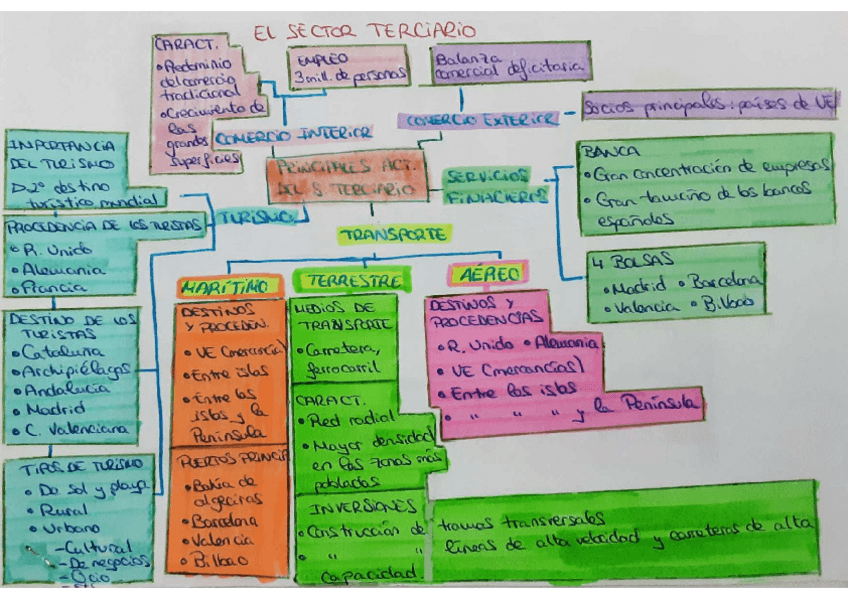 EL SECTOR TERCIARIO
CARACT.
• Predominio
del comercio
tradicional
• Crecimiento de
las
grandes
superficies
EMPLEO
3 mill. de personas
Balanza
comercial deficitaria
COMERCIO INTERIOR
COMERCIO EXTERIOR
Socios principales: países de UE
PRINCIPALES ACT.
DEL S TERCIARIO
SERVICIOS
FINACIEROS
BANCA
• Gran concentración de empresas
• Gran tamaño de los bancos
españoles
4 BOLSAS
• Madrid • Barcelona
• Valencia • Bilbao
TURISMO
IMPORTANCIA
DEL TURISMO
2º destino
turístico mundial
PROCEDENCIA DE LOS TURISTAS
• R. Unido
• Alemania
• Francia
DESTINO DE LOS
TURISTAS
• Cataluña
• Archipiélagos
• Andalucía
• Madrid
• C. Valenciana
TIPOS DE TURISMO
• De sol y playa
• Rural
• Urbano
- Cultural
- De negocios
- Ocio
TRANSPORTE
MARÍTIMO
DESTINOS
Y PROCEDEN.
• UE (mercancía)
• Entre islas
• Entre las
islas y la
Península
PUERTOS PRINCIP
• Bahía de
algeciras
• Barcelona
• Valencia
• Bilbao
TERRESTRE
MEDIOS DE
TRANSPORTE
• Carretera,
ferrocarril
CARACT.
• Red radial
• Mayor densidad
en las zonas más
pobladas
INVERSIONES
• Construcción de tramos transversales
• " " líneas de alta velocidad y carreteras de alta
capacidad
AÉREO
DESTINOS Y
PROCEDENCIAS
• R. Unido • Alemania
• UE (mercancías)
• Entre las islas
• " " " y la Península